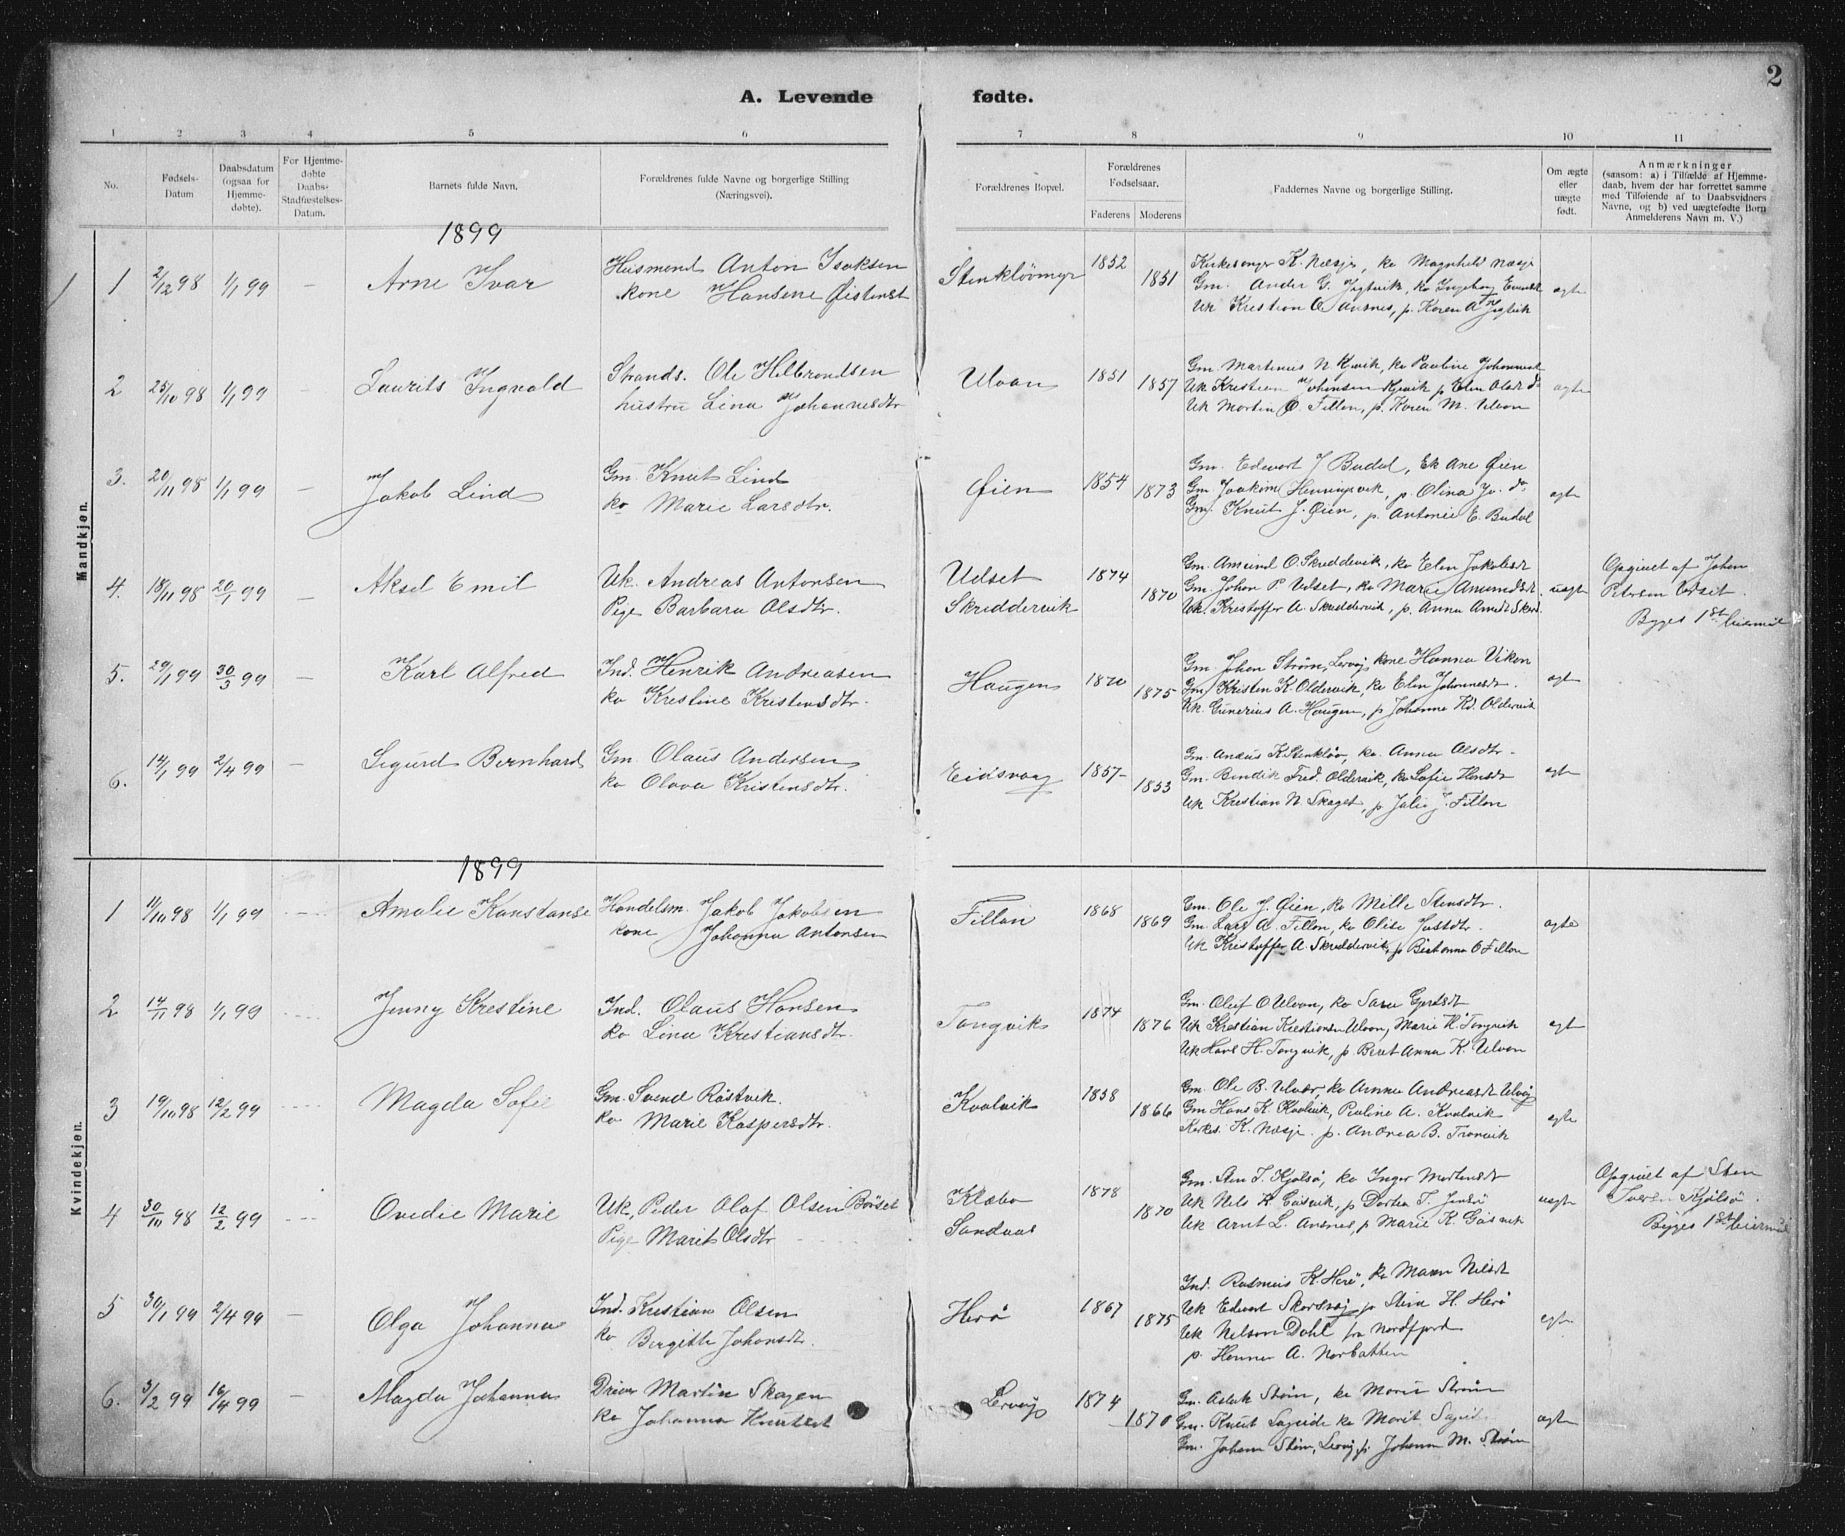 2
A. Levende fødte.
1 2 3 4 5 6 7 8 9 10 11
No.
Fødsels-
Datum
Daabsdatum
(ogsaa for
Hjemme-
døbte).
For Hjemme-
døbte
Daabs-
Stadfæstelses-
Datum.
Barnets fulde Navn.
Forældrenes fulde Navne og borgerlige Stilling
(Næringsvei).
Forældrenes Bopæl.
Forældrenes
Fødselsaar.
Faderens Moderens
Faddernes Navne og borgerlige Stilling.
Om ægte
eller
uægte
født.
Anmærkninger
(saasom: a) i Tilfælde af Hjemme-
daab, hvem der har forrettet samme
med Tilføiende af to Daabsvidners
Navne, og b) ved uægtefødte Børn
Anmelderens Navn m. V.)
Mandkjøn.
1899
1 2/12 98 1/1 99 — Arne Ivar
Husmand Anton Isaksen
kone Hansine Øistensdt
Stenkløvmyr 1852 1851
Kirkesanger K. Næsje, ko Magnhild Næsje
Gm. Ander G. Jigtvik, ko Ingeborg
Uk Kristian O Ansnes, p. Karen A Jigtvik
ægte
2 25/10 98 1/1 99 — Laurits Ingvald
Strands. Ole Hilbrandsen
hustru Lina Johannesdtr
Ulvan 1851 1857
Gm. Martinus N Kjøvik, ko Pauline
Uk Kristian Johansen Kjøvik p Elen Olsdt do
Uk Martin O. Fillan, p. Karen M. Ulvan
ægte
3. 20/11 98 1/1 99 — Jakob Lind
Gm. Knut Lind
ko Marie Larsdtr.
Øien 1854 1873
Gm. Edevart J Budal, Ek Ane Øien
Gm Joakim Henningsvik, p. Olina Jo. do
Gm. Knut J. Øien, p. Antonie E. Budal
ægte
4. 18/11 98 20/1 99 — Aksel Emil
Uk. Andreas Antonsen
Pige Barbara Olsdtr.
Udset
Skreddervik
1874 1870
Gm. Amund O. Skreddervik, ko Elen Jakobsdt
Gm Johan P. Udset, ko Marie Amundsdt.
Uk. Kristoffer A. Skreddervik, p. Anna Amdt Skred.
uægte
Opgivet af Johan
Petersen Udset.
Begges 1st leiermål
5. 29/1 99 30/3 99 — Karl Alfred
Ind. Henrik Andreasen
ko Kristine Kristensdtr.
Haugen 1870 1875
Gm. Johan Strøm, Lervåg, kone Hanna Vikan
Gm Kristen K. Oldervik, ko Elen Johannesdt.
Uk. Gunerius A. Haugen, p Johanna Kd. Oldervik
ægte
6. 14/1 99 2/4 99 — Sigurd Bernhard
Gm. Olaus Andersen
ko Olava Kristensdtr.
Eidsvaag 1857 1853
Gm. Anæus K. Stenkløv, ko. Anna Olsdtr.
Gm. Bendik Fred. Oldervik, ko Sofie Hansdt
Uk Kristian N. Skaget, p Julie J. Fillan
ægte
Kvindekjøn.
1899
1 11/10 98 1/1 99 Amalie Konstanse
Handelsm. Jakob Jakobsen
kone Johanna Antonsen
Fillan 1868 1869
Gm. Ole J. Øien, ko Mille Stensdtr.
Gm. Lars A. Fillan, ko Olise Justdtr.
Uk Kristoffer A. Skreddervik, p Beret O Fillan
ægte
2 14/11 98 1/1 99 Jenny Kristine
Ind. Olaus Hansen
ko Lina Kristiansdtr.
Tangvik 1874 1876
Gm. Oluf O Ulvan, ko Sara
Uk Kristian Kristiansen Ulvan, Marie H. Tangvik
Uk Karl H. Tangvik, p Beret Anna K. Ulvan
ægte
3 19/10 98 12/2 99 Magda Sofie
Gm. Svend Røstvik.
ko Marie Kaspersdtr.
Kvalvik 1858 1866
Gm. Ole B. Ulvær, ko Anna Andreasdt Ulvåg
Gm Hans K. Kvalvik, Pauline A. Kvalvik
Kirkes. K. Næsje. p. Andrea B. Tranvik
ægte
4 30/11 98 12/2 99 Ovedie Marie
Uk. Peder Olaf Olsen Børset
Pige Marit Olsdtr
Klæbo
Sandaas
1878 1870
Gm. Sten T. Kjølsø, ko Inger Martensdt
Uk Nils K Gåsvik, p Dortea T. Jensø
Uk Arnt L. Ansnes, p Marie K. Gåsvik
uægte
Opgivet af Sten
Kjølsø.
Begges 1ste leiermål
5 30/1 99 2/4 99 — Olga Johanna
Ind. Kristian Olsen
ko Bergitte Johansdtr.
Herø 1867 1875
Ind. Rasmus K. Herø, ko Maren Nilsdt
Uk Edvart Skarsvåg, p Stina H. Herø
Uk Nelson Dahl fra Nordfjord
p. Hanna A. Norbotten
ægte
6. 3/2 99 16/4 99 — Magda Johanna
Martin Skagen
ko Johanna Knutsdt
Lervåg 1874 1870
Gm. Aslak Strøm, ko Marit Strøm
Gm. Knut ko Marit
Gm. Johan Strøm, Lervåg, p. Johanna M. Strøm
ægte